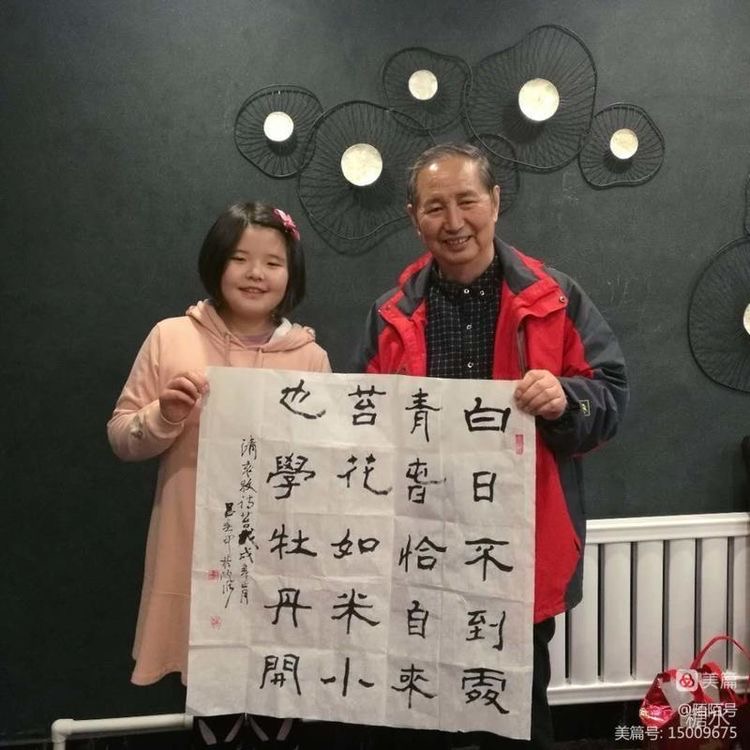 白日不到處
青春恰自來
苔花如米小
也學牡丹開
清袁枚詩苔
美篇
@陌陌号
糖水
美篇号: 15009675